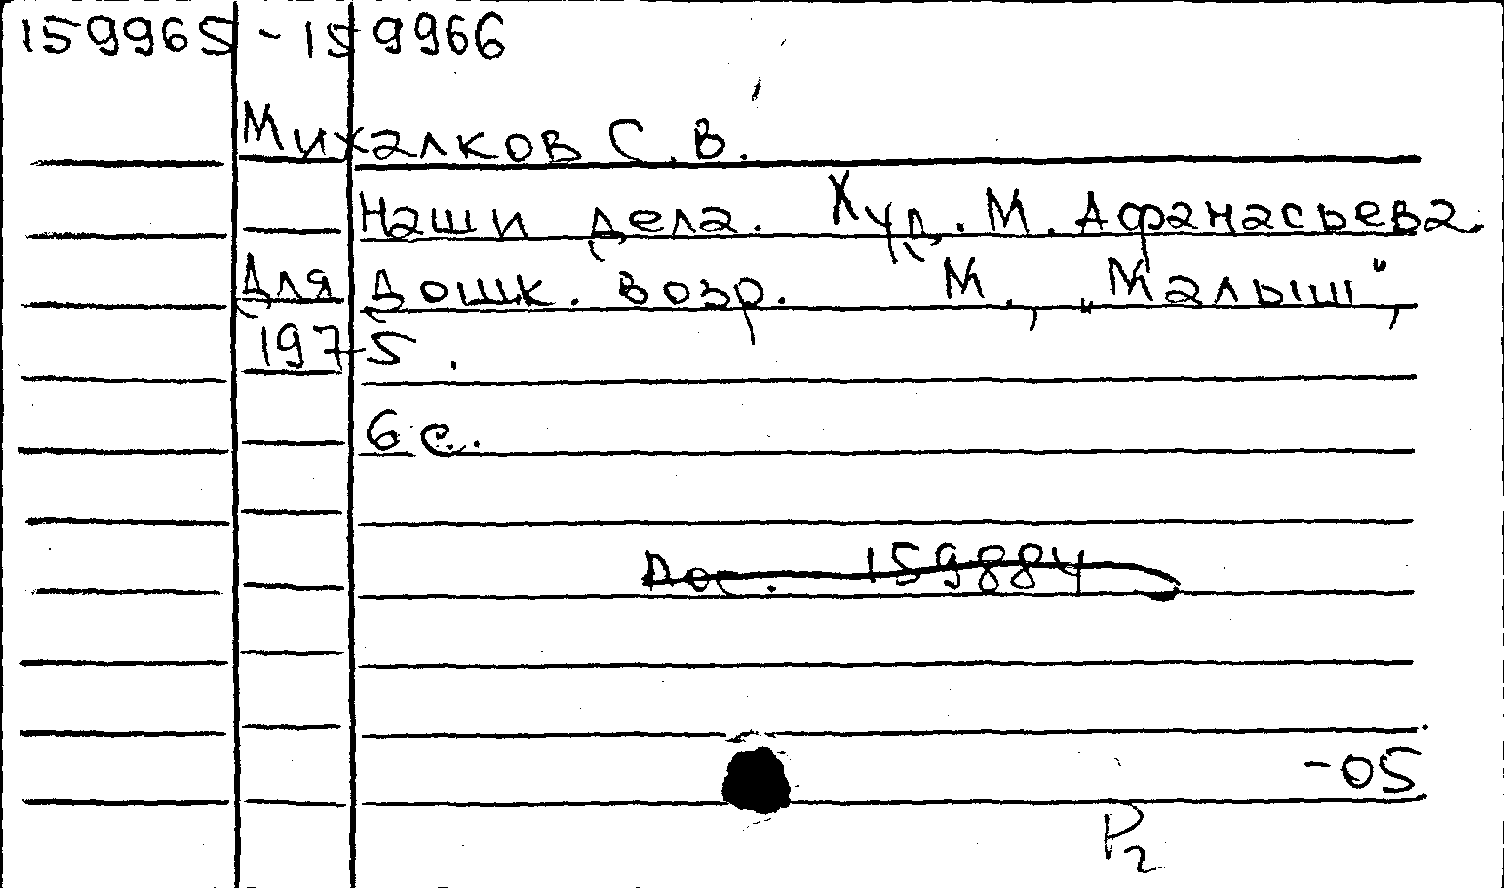 159965 - 159966
Михалков С. В.
Наши дела. Худ. М. Афанасьева.
Для дошк. возр. М., „Малыш“,
1975.
6 с.
Дос. 159884
-05
Р2